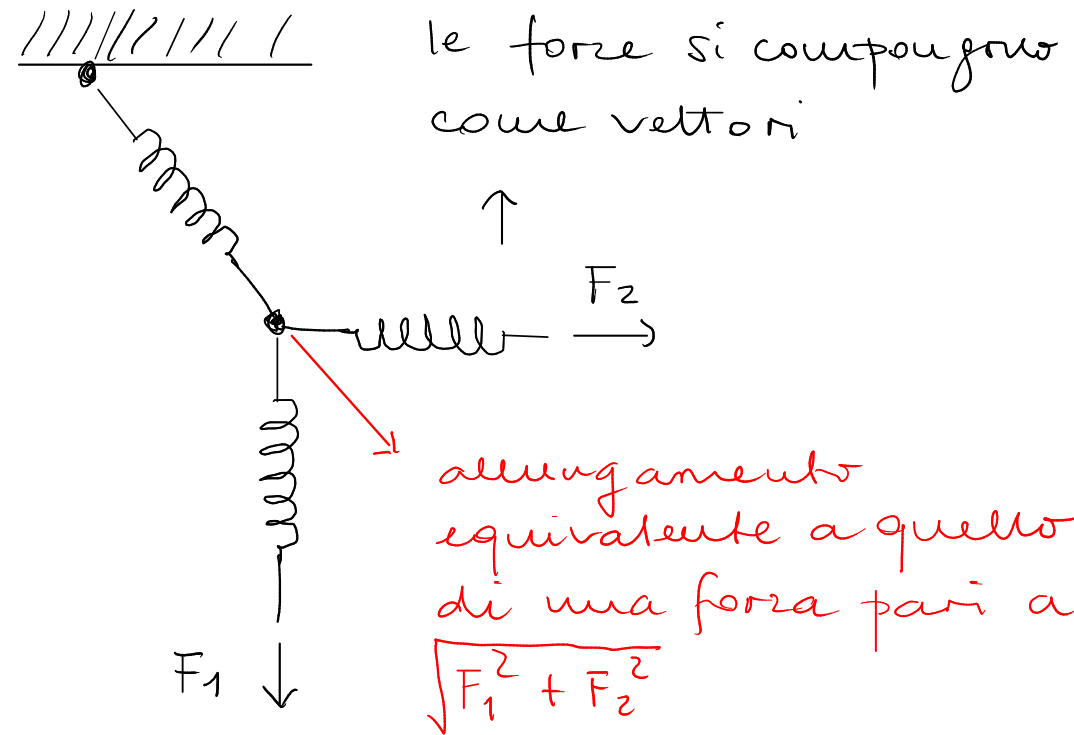 le forze si compongono
come vettori
F₂
allungamento
equivalente a quello
di una forza pari a
√(F₁² + F₂²)
F₁